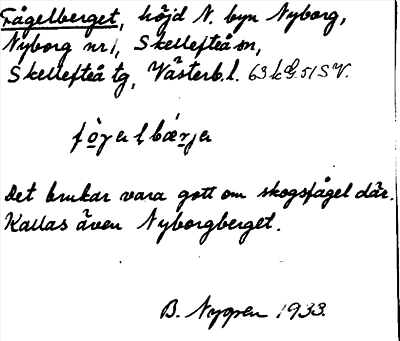 Fågelberget, höjd N. byn Nyborg,
Nyborg nr 1, Skellefteå sn,
Skellefteå tg, Västerb. l. 63 k G. 51 SV.
Det brukar vara gott om skogsfågel där.
Kallas även Nyborgberget.
B. Nygren 1933.